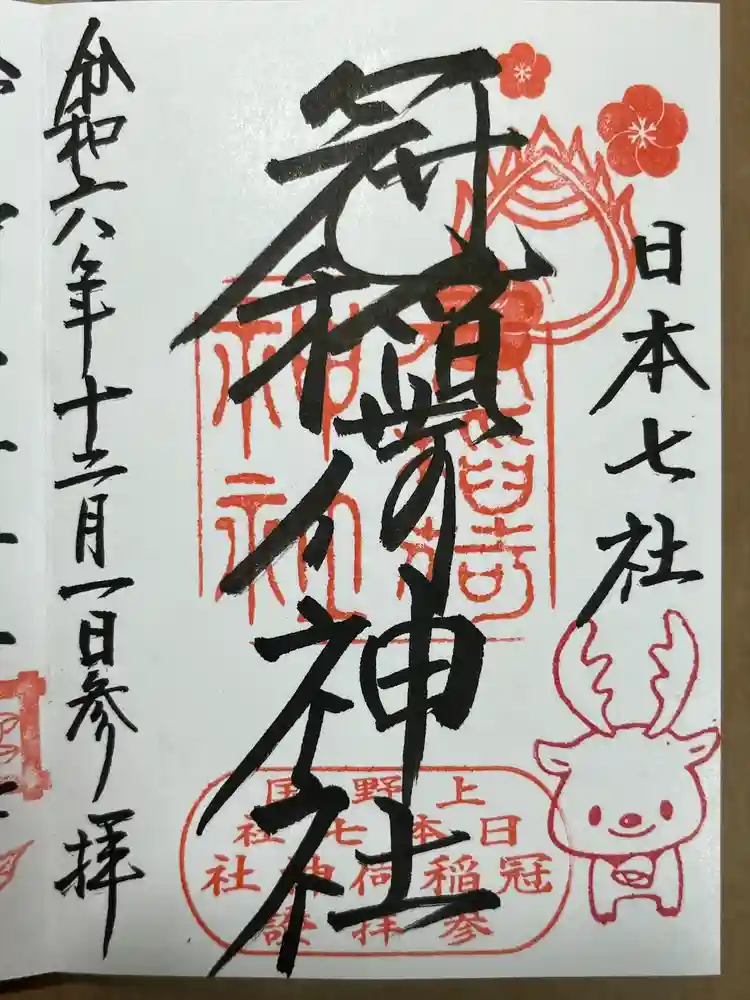 日本七社
冠稲荷神社
上野国
日本七社
冠稲荷神社
参拝證
令和六年十二月一日参拝